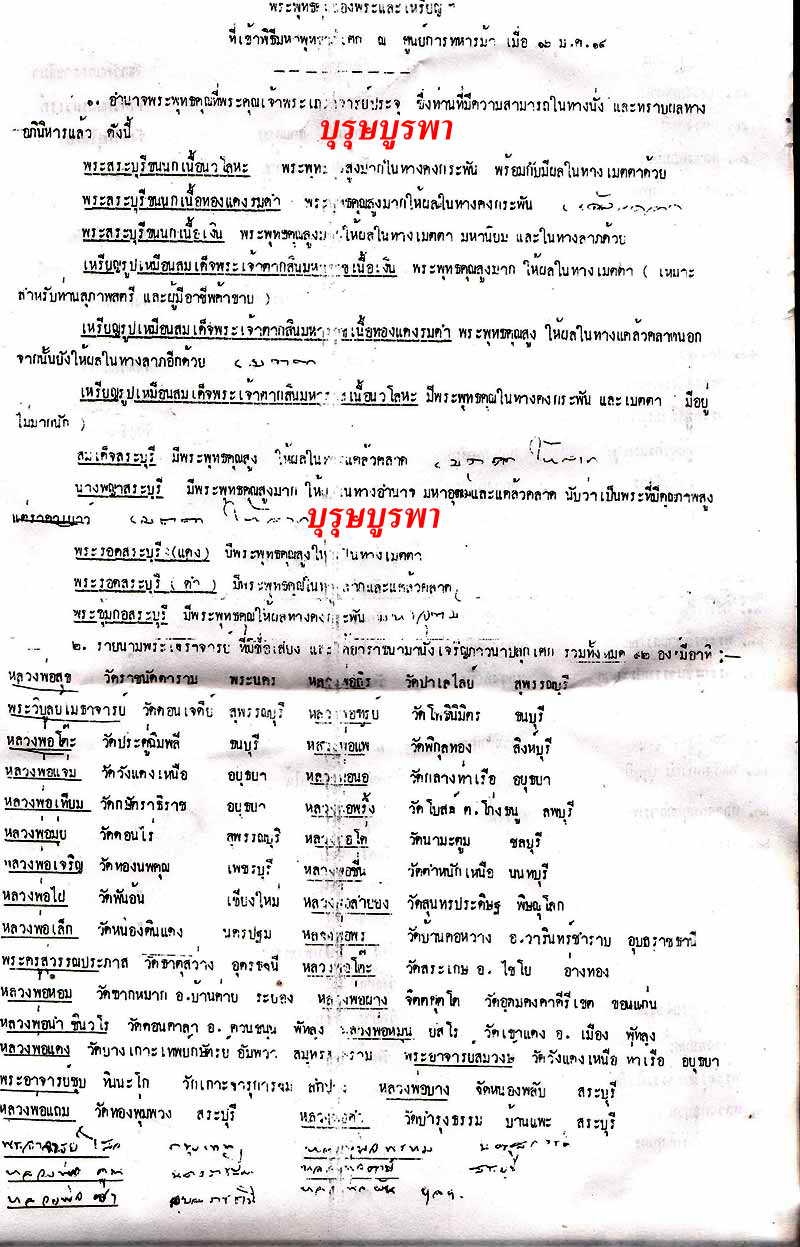 พระพุทธคุณของพระและเหรียญ ฯ
ที่เข้าพิธีมหาพุทธาภิเศก ณ ศูนย์การทหารม้า เมื่อ ๑๖ ม.ค.๑๙
๑. อำนาจพระพุทธคุณที่พระคุณเจ้าพระเกจิอาจารย์ประจุ ซึ่งท่านที่มีความสามารถในทางนั่ง และทราบผลทาง
อภินิหารแล้ว ดังนี้
บุรุษบูรพา
พระสระบุรีขนนกเนื้อนวโลหะ พระพุทธคุณสูงมากในทางคงกระพัน พร้อมกับมีผลในทางเมตตาด้วย
พระสระบุรีขนนกเนื้อทองแดงรมดำ พระพุทธคุณสูงมากให้ผลในทางคงกระพัน
พระสระบุรีขนนกเนื้อเงิน พระพุทธคุณสูงมากให้ผลในทางเมตตา มหานิยม และในทางลาภด้วย
เหรียญรูปเหมือนสมเด็จพระเจ้าตากสินมหาราชเนื้อเงิน พระพุทธคุณสูงมาก ให้ผลในทางเมตตา ( เหมาะ
สำหรับท่านสุภาพสตรี และผู้มีอาชีพค้าขาย )
เหรียญรูปเหมือนสมเด็จพระเจ้าตากสินมหาราชเนื้อทองแดงรมดำ พระพุทธคุณสูง ให้ผลในทางแคล้วคลาดนอก
จากนั้นยังให้ผลในทางลาภอีกด้วย
เหรียญรูปเหมือนสมเด็จพระเจ้าตากสินมหาราชเนื้อนวโลหะ มีพระพุทธคุณในทางคงกระพัน และเมตตา มีอยู่
ไม่มากนัก )
สมเด็จสระบุรี มีพระพุทธคุณสูง ให้ผลในทางแคล้วคลาด
นางพญาสระบุรี มีพระพุทธคุณสูงมาก ให้ผลในทางอำนาจ มหาอุตม์และแคล้วคลาด นับว่าเป็นพระที่มีคุณภาพสูง
บุรุษบูรพา
พระรอดสระบุรี (แดง) มีพระพุทธคุณสูงให้ผลในทางเมตตา
พระรอดสระบุรี ( ดำ ) มีพระพุทธคุณในทางลาภและแคล้วคลาด
พระซุ้มกอสระบุรี มีพระพุทธคุณให้ผลทางคงกระพัน
๒. รายนามพระเกจิอาจารย์ ที่มีชื่อเสียง และได้อาราธนามานั่งเจริญภาวนาปลุกเศก รวมทั้งหมด ๙๒ องค์มีอาทิ :—
หลวงพ่อสุข วัดราชนัดดาราม พระนคร หลวงพ่อถิร วัดป่าเลไลย์ สุพรรณบุรี
พระวิบูลย์เมธาจารย์ วัดดอนเจดีย์ สุพรรณบุรี หลวงพ่อทูรย์ วัดโพธินิมิตร ธนบุรี
หลวงพ่อโต๊ะ วัดประดู่ฉิมพลี ธนบุรี หลวงพ่อแพ วัดพิกุลทอง สิงห์บุรี
หลวงพ่อแจ่ม วัดวังแดงเหนือ อยุธยา หลวงพ่อนอ วัดกลางท่าเรือ อยุธยา
หลวงพ่อเทียม วัดกษัตราธิราช อยุธยา หลวงพ่อพริ้ง วัดโบสถ์ ต.โก่งธนู ลพบุรี
หลวงพ่อมุ่ย วัดดอนไร่ สุพรรณบุรี หลวงพ่อโต๋ วัดนามะตูม ชลบุรี
หลวงพ่อเจริญ วัดทองนพคุณ เพชรบุรี หลวงพ่อชื่น วัดตำหนักเหนือ นนทบุรี
หลวงพ่อไฝ วัดพันอ้น เชียงใหม่ หลวงพ่อสำยอง วัดสุนทรประดิษฐ พิษณุโลก
หลวงพ่อเล็ก วัดหนองดินแดง นครปฐม หลวงพ่อพร วัดบ้านดอหวาง อ.วารินทร์ชำราบ อุบลราชธานี
พระครูสุวรรณประภาส วัดธาตุสว่าง อุดรธานี หลวงพ่อโต๊ะ วัดสระเกษ อ.ไชโย อ่างทอง
หลวงพ่อหอม วัดชากหมาก อ.บ้านค่าย ระยอง หลวงพ่อผาง จิตตคุตโต วัดอุดมคงคาคีรีเขต ขอนแก่น
หลวงพ่อนำ ชินวโร วัดดอนศาลา อ.ควนขนุน พัทลุง หลวงพ่อหมุน ยสโร วัดเขาแดง อ.เมือง พัทลุง
หลวงพ่อแดง วัดบางเกาะเทพย์ศักดิ์ อัมพวา สมุทรสงคราม พระอาจารย์สมวงษ์ วัดวังแดงเหนือ ท่าเรือ อยุธยา
พระอาจารย์ชุบ ทินนะโก วัดเกาะวารุการาม ลำปาง หลวงพ่อยาง วัดหนองพลับ สระบุรี
หลวงพ่อแถม วัดทองพุ่มพวง สระบุรี หลวงพ่อดำ วัดบำรุงธรรม บ้านแพะ สระบุรี
พระอาจารย์ กรุงเทพฯ หลวงพ่อพรหม นครสวรรค์
หลวงพ่อ สระบุรี
หลวงพ่อ อุบลราชธานี หลวงพ่อ